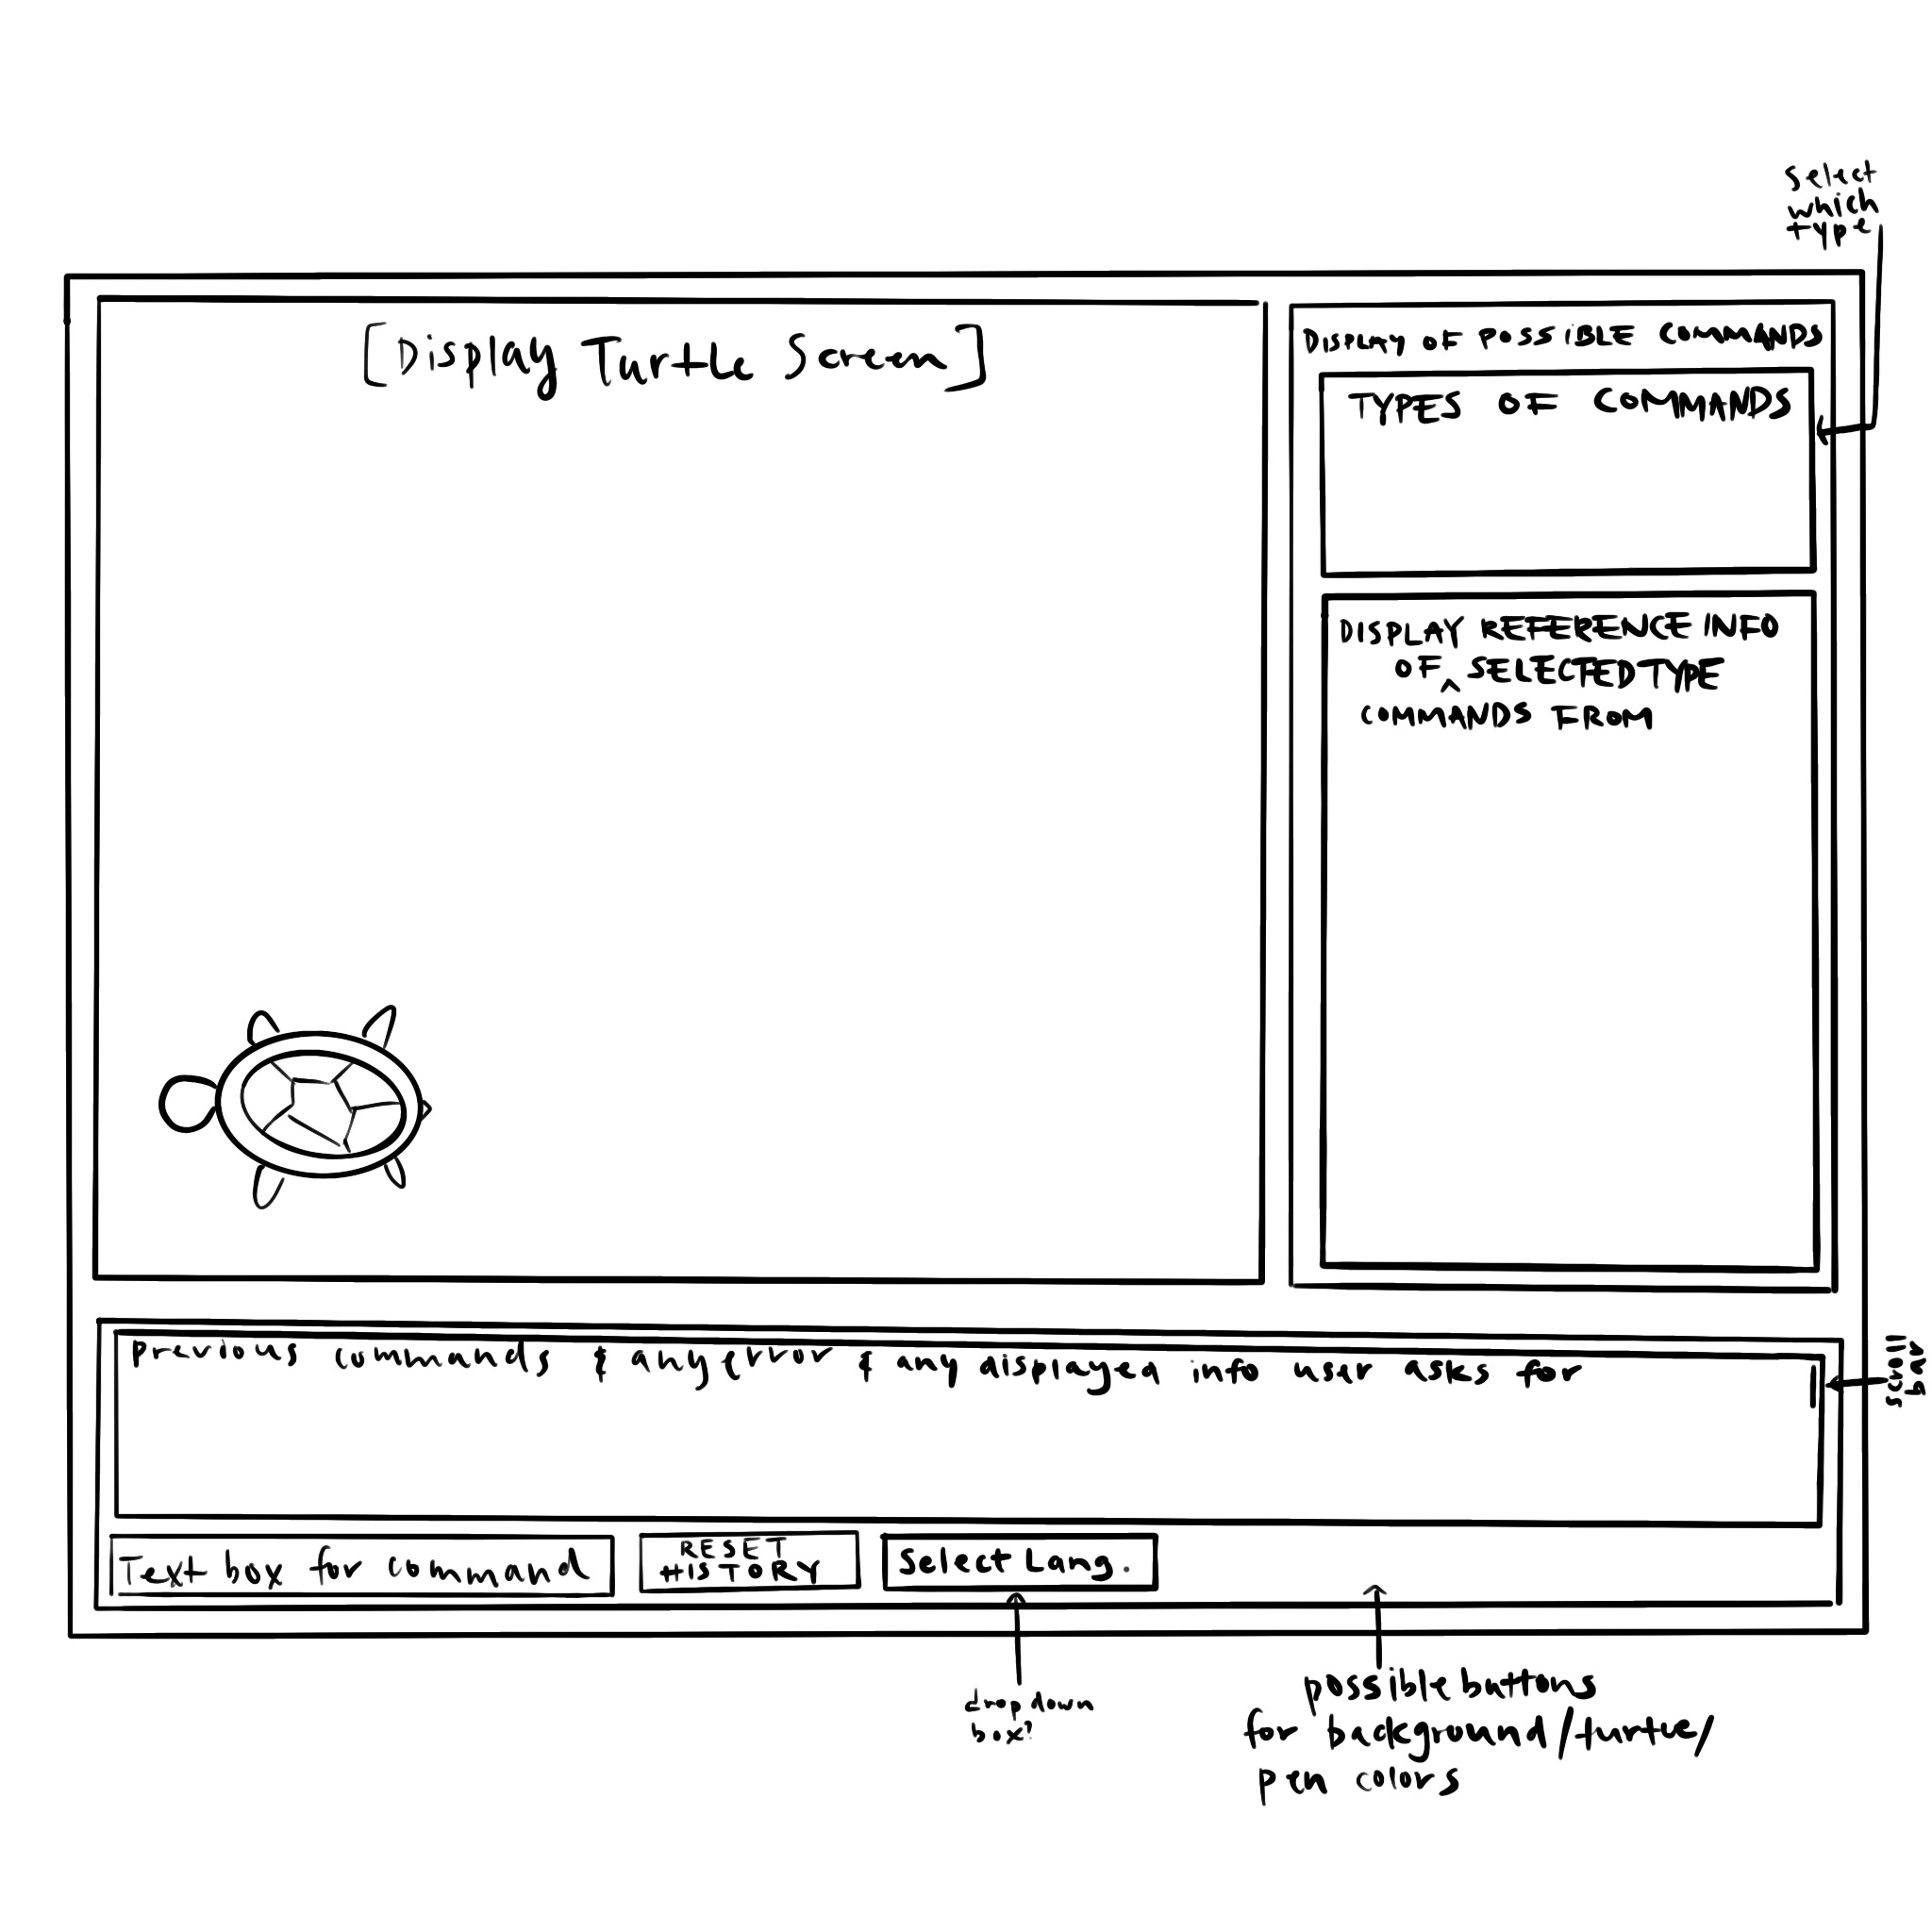 select
which
type
[Display Turtle Screen]
DISPLAY OF POSSIBLE COMMANDS
TYPES OF COMMANDS
DISPLAY REFERENCE INFO
OF ^ SELECTED TYPE
COMMANDS FROM
Previous commands & any error & any displayed info user asks for
scroll
bar
Text box for command
RESET
HISTORY
Select Lang.
drop down
box?
possible buttons
for background/turtle/
pen colors